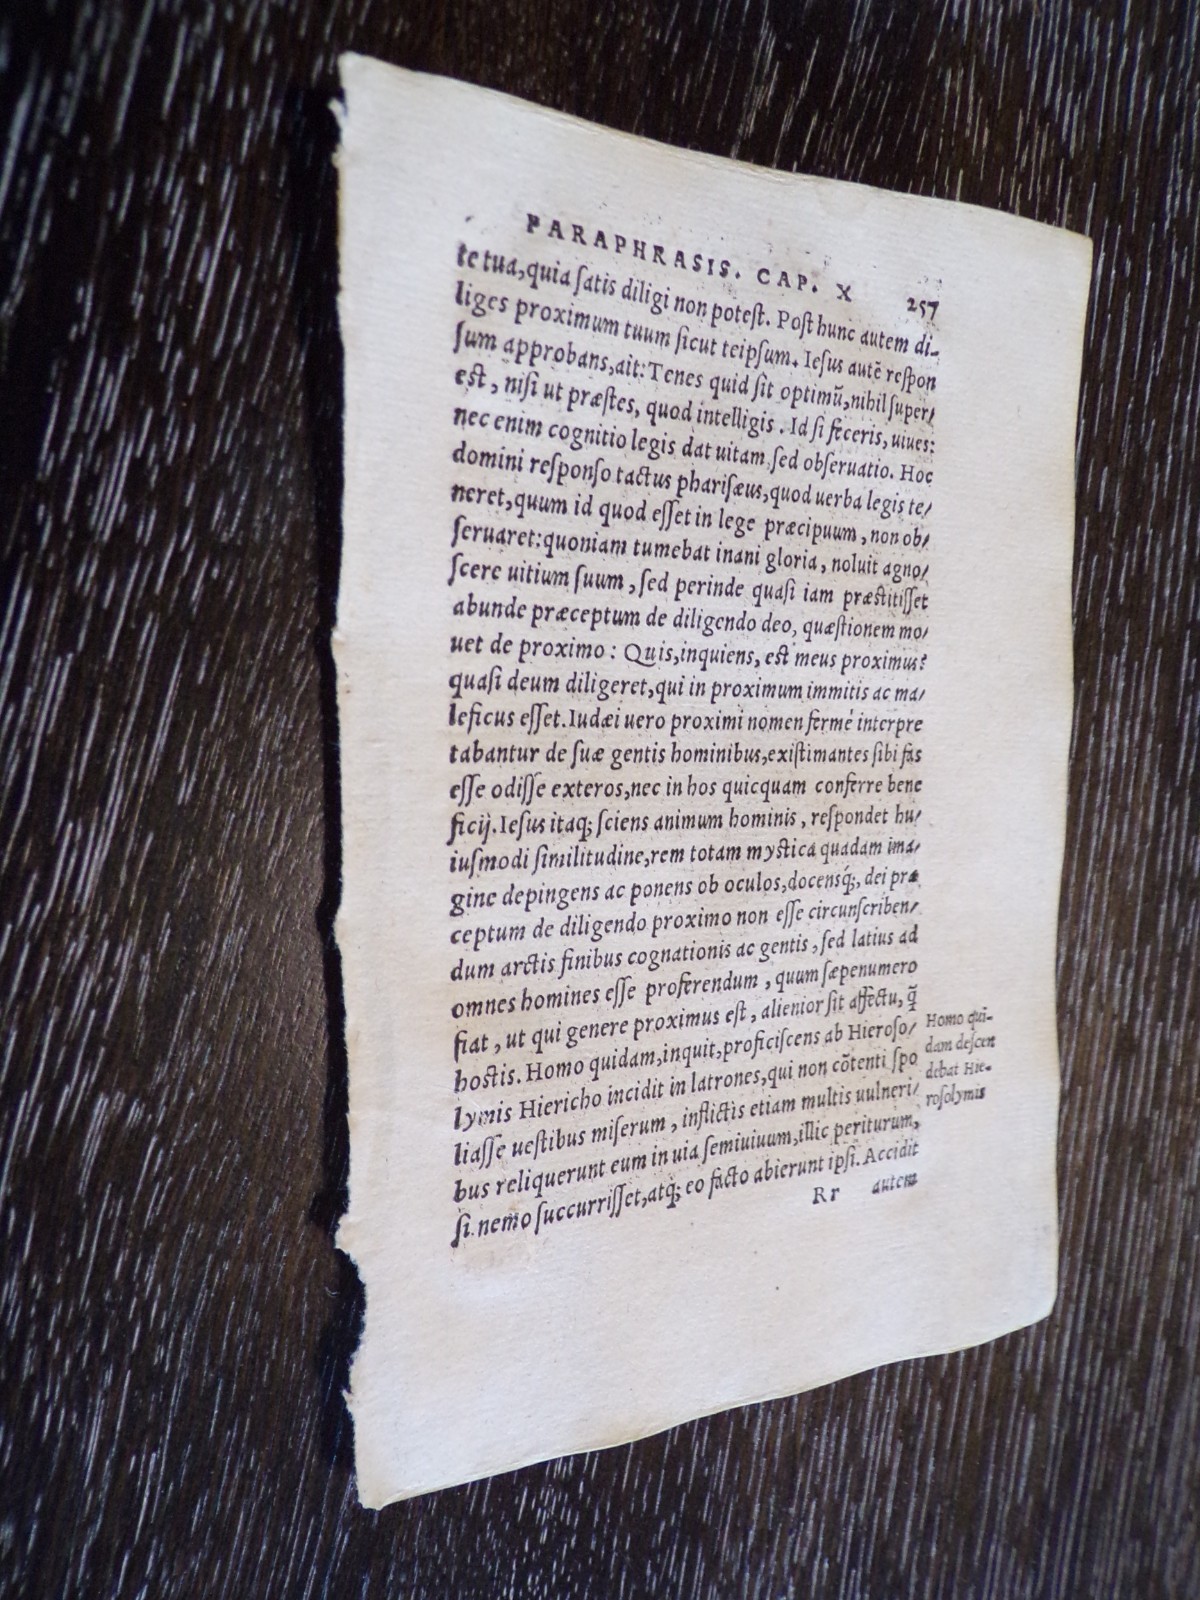 PARAPHRASIS. CAP. X 257
te tua, quia ſatis diligi non poteſt. Poſt hunc autem di-
liges proximum tuum ſicut teipſum. Ieſus autē reſpon
ſum approbans, ait: Tenes quid ſit optimū, nihil ſuper/
eſt, niſi ut præſtes, quod intelligis. Id ſi feceris, uiues:
nec enim cognitio legis dat uitam, ſed obſeruatio. Hoc
domini reſponſo tactus phariſæus, quod uerba legis te/
neret, quum id quod eſſet in lege præcipuum, non ob/
ſeruaret: quoniam tumebat inani gloria, noluit agno/
ſcere uitium ſuum, ſed perinde quaſi iam præſtitiſſet
abunde præceptum de diligendo deo, quæſtionem mo/
uet de proximo: Quis, inquiens, eſt meus proximus?
quaſi deum diligeret, qui in proximum immitis ac ma/
leficus eſſet. Iudæi uero proximi nomen fermé interpre
tabantur de ſuæ gentis hominibus, exiſtimantes ſibi fas
eſſe odiſſe exteros, nec in hos quicquam conferre bene
ficij. Ieſus itaq; ſciens animum hominis, reſpondet hu/
iuſmodi ſimilitudine, rem totam myſtica quadam ima/
gine depingens ac ponens ob oculos, docensq́;, dei præ
ceptum de diligendo proximo non eſſe circunſcriben/
dum arctis finibus cognationis ac gentis, ſed latius ad
omnes homines eſſe proferendum, quum ſæpenumero
fiat, ut qui genere proximus eſt, alienior ſit affectu, q̄
hoſtis. Homo quidam, inquit, proficiſcens ab Hieroſo/
lymis Hiericho incidit in latrones, qui non cōtenti ſpo
liaſſe ueſtibus miſerum, inflictis etiam multis uulneri/
bus reliquerunt eum in uia ſemiuiuum, illic periturum,
ſi nemo ſuccurriſſet, atq; eo facto abierunt ipſi. Accidit
Rr autem
Homo qui-
dam deſcen
debat Hie-
roſolymis